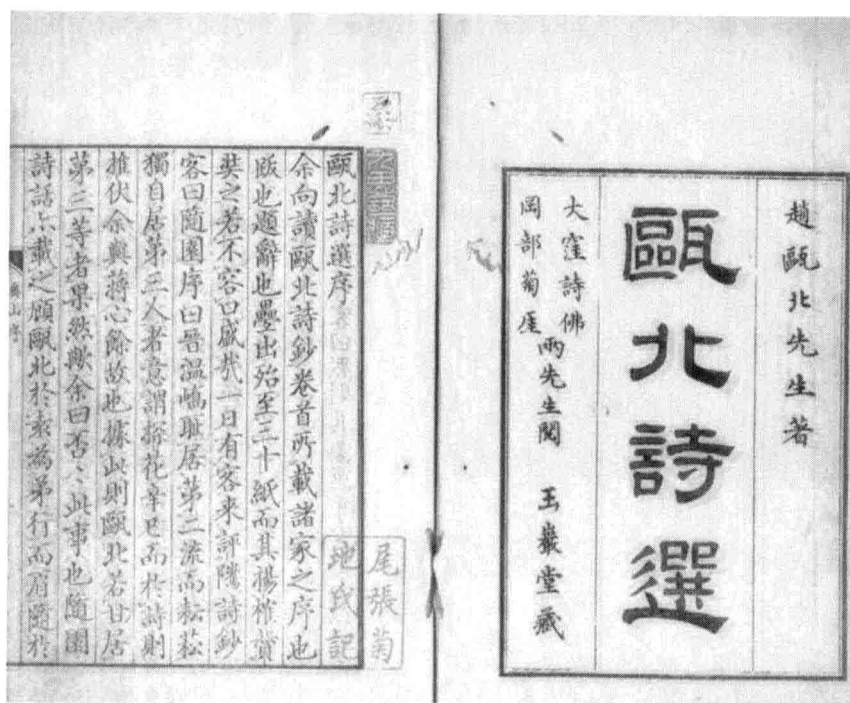 趙甌北先生著
甌北詩選
大窪詩佛
岡部菊厓
兩先生閱
玉巖堂藏
尾張菊
地氏記
甌北詩選序
余向讀甌北詩鈔卷首所載諸家之序也
版也題辭也壘出殆至三十紙而其揚榷賛
奘之若不容口盛哉一日有客来評隲詩鈔
客曰隨園序曰晉溫嶠耻居第二流而耘菘
獨自居第三人者意謂探花辛巳而於詩則
推伏余與蔣心餘故也據此則甌北若甘居
第三等者果然歟余曰否〻此事也隨園
詩話亦載之顧甌北於袁為弟行而肩隨於
序